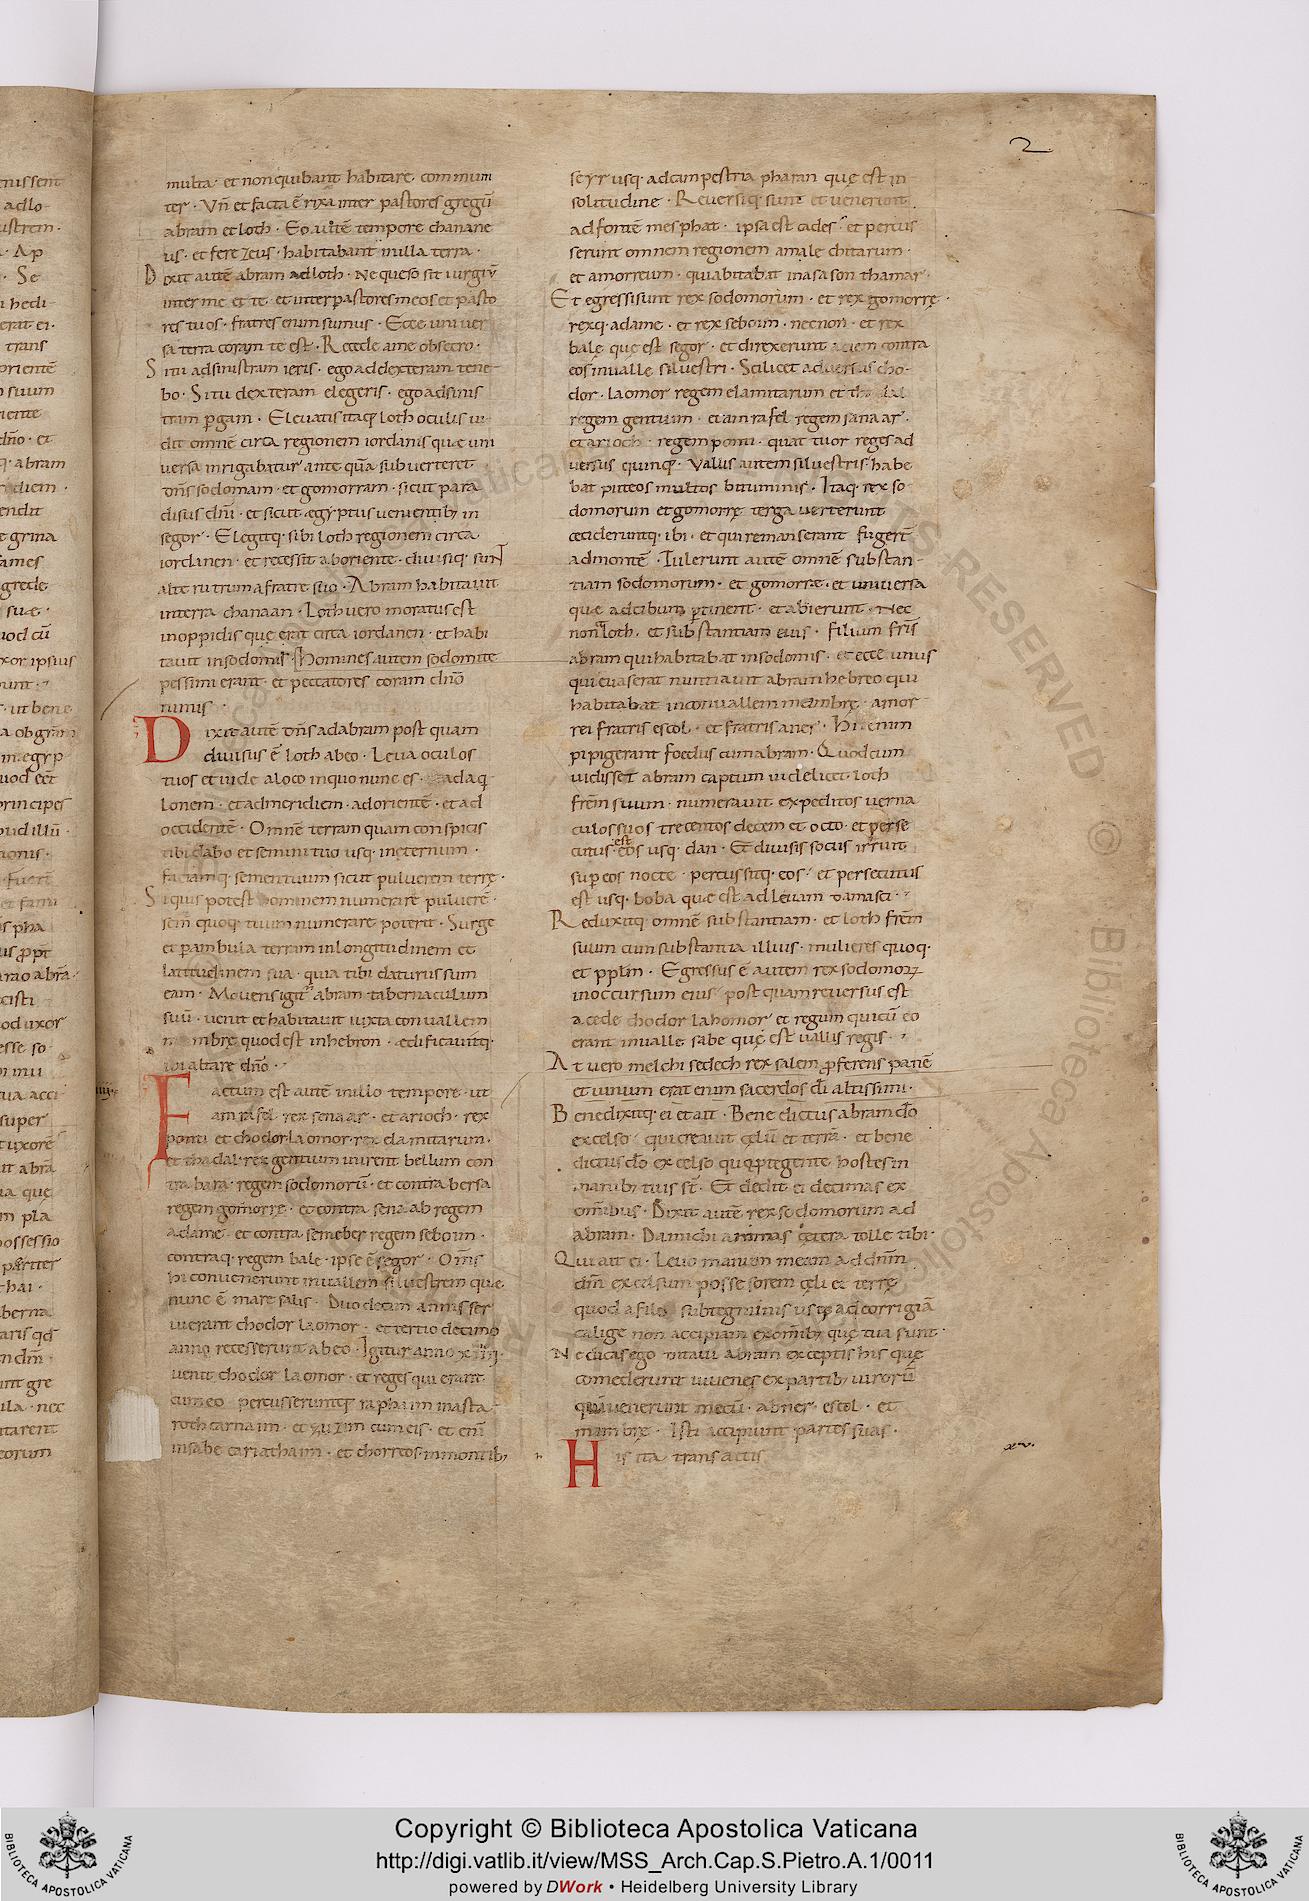 2
multa · et non quibant habitare commum
ter · Vñ et facta ē rixa inter pastores gregū
abram et loth · Eo autē tempore chanane
us · et ferezeus · habitabant inilla terra ·
Dixit autē abram adloth · Ne queso sit iurgiū
inter me et te · et inter pastores meos et pasto
res tuos · fratres enim sumus · Ecce univer
sa terra coram te est · Recede ame obsecro ·
Si tu adsinistram ieris · ego addexteram tene
bo · Si tu dexteram elegeris · ego adsinis
tram pgam · Elevatis itaq loth oculis vi
dit omnē circa regionem iordanis quæ uni
versa inrigabatur ante quā subverteret
dñs sodomam · et gomorram · sicut para
disus dñi · et sicut ægyptus venientib in
segor · Elegitq · sibi loth regionem circa
iordanen · et recessit aboriente · divisiq · sunt
alterutrum afratre suo · Abram habitavit
interra chanaan · Loth vero moratus est
inoppidis que erat circa iordanen · et habi
tavit insodomis · Homines autem sodomite
pessimi erant · et peccatores coram dño
nimis ·
Dixit autē dñs adabram post quam
divisus ē loth abeo · Leva oculos
tuos et vide aloco inquo nunc es · adaq
lonem · et admeridiem · adorientē · et ad
occidentē · Omnē terram quam conspicis
tibi dabo et semini tuo usq · ineternum ·
faciamq · semen tuum sicut pulverem terrę ·
Siquis potest hominem numerare pulverē ·
semē quoq tuum numerare poterit · Surge
et pambula terram inlongitudinem et
latitudinem sua · quia tibi daturus sum
eam · Movens igit abram tabernaculum
suū · venit et habitavit iuxta convallem
mambre quod est inhebron · ædificavitq ·
ibi altare dño ·
Factum est autē inillo tempore · ut
amrafel rex senaar · et arioch · rex
ponti et chodorlaomor rex elamitarum ·
et thadal · rex gentium inirent bellum con
tra bara · regem sodomorū · et contra bersa
regem gomorre · et contra senaab regem
adame · et contra semeber regem seboim ·
contraq · regem bale · ipse ē segor · Omñs
hi convenerunt invallem silvestrem que
nunc ē mare salis · Duodecim annis ser
vierant chodorlaomor · et tertio decimo
anno recesserunt abeo · Igitur anno xiiij ·
venit chodorlaomor · et reges qui erant
cumeo percusseruntq raphaim inasta
rothcarnaim · et zuzim cum eis · et emī
insabe cariathaim · et chorreos inmontib
seyr usq · adcampestria pharan quę est in
solitudine · Reversiq sunt et venerunt
adfontē mesphat · ipsa est cades · et percus
serunt omnem regionem amalechitarum ·
et amorreum · qui abitabat inasason thamar ·
Et egressi sunt rex sodomorum · et rex gomorrę ·
rexq · adame · et rex seboim · necnon · et rex
bale quę est segor · et direxerunt aciem contra
eos invalle silvestri · Scilicet adversus cho
dor · laomor regem elamitarum et thadal
regem gentium · et amrafel regem sanaar ·
et arioch · regem ponti · quattuor reges ad
versus quinq · Vallis autem silvestris habe
bat puteos multos bituminis · Itaq · rex so
domorum et gomorrę terga verterunt
cecideruntq · ibi · et qui remanserant fugerū
admontē · Tulerunt autē omnē substan
tiam sodomorum · et gomorræ · et universa
que adcibum ptinent · et abierunt · Nec
non loth · et substantiam eius · filium frīs
abram qui habitabat insodomis · et ecce unus
qui evaserat nuntiavit abram hebreo qui
habitabat inconvallem mambrę · amor
rei fratris escol · et fratris aner · Hi enim
pipigerant foedus cum abram · Quod cum
vidisset abram captum videlicet · loth
frēm suum · numeravit expeditos verna
culos suos trecentos decem et octo · et perse
cutus est eos usq · dan · Et divisis sociis irruit
sup eos nocte · percussitq · eos · et persecutus
est usq · hoba que est adlevam damasci ·
Reduxitq · omnē substantiam · et loth frēm
suum cum substantia illius · mulieres quoq ·
et pplm · Egressus ē autem rex sodomorꝝ
inoccursum eius post quam reversus est
acede chodorlahomor et regum qui cū eo
erant invalle sabe quę est vallis regis ·
At vero melchisedech rex salem pferens panē
et vinum erat enim sacerdos dī altissimi ·
Benedixitq · ei et ait · Benedictus abram dō
excelso · qui creavit cęlū et terrā · et bene
dictus dō excelso quo ptegente hostes in
manib tuis st · Et dedit ei decimas ex
omībus · Dixit autē rex sodomorum ad
abram · Da michi animas cętera tolle tibi ·
Qui ait ei · Levo manum meam ad dnm
dm excelsum possesorem cęli et terrę
quod afilo subtegminis usq ad corrigiā
calige non accipiam exomīb quę tua sunt ·
Ne dicas ego ditavi abram exceptis his quę
comederunt iuvenes ex partib virorū
qui venerunt mecū · abner escol · et
mambre · Isti accipiunt partes suas ·
xv.
His ita transactis
Copyright © Biblioteca Apostolica Vaticana
http://digi.vatlib.it/view/MSS_Arch.Cap.S.Pietro.A.1/0011
powered by DWork • Heidelberg University Library